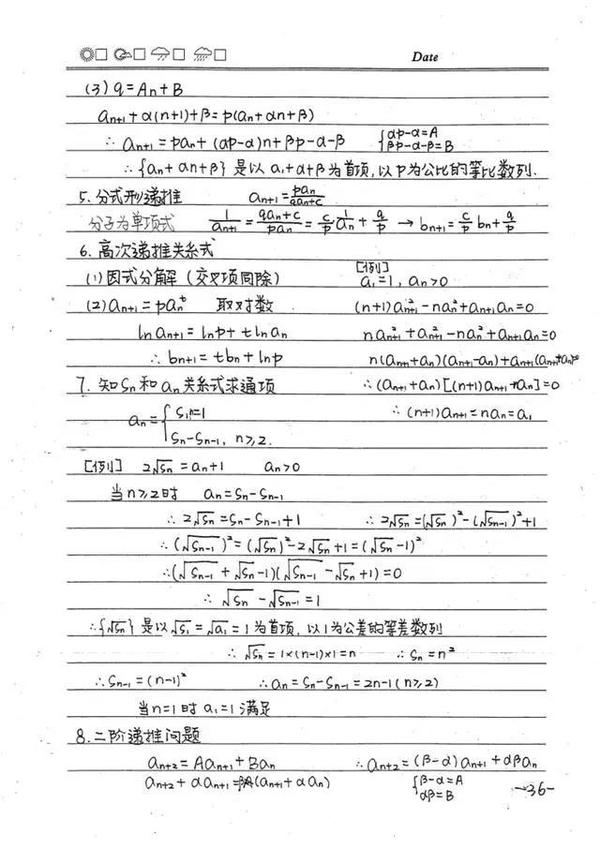 Date
(3) q=An+B
aₙ₊₁+α(n+1)+β=p(aₙ+αn+β)
∴ aₙ₊₁=paₙ+(αp-α)n+βp-α-β {αp-α=A βp-α-β=B
∴{aₙ+αn+β}是以a₁+α+β为首项,以p为公比的等比数列.
5. 分式形递推 aₙ₊₁=paₙ/(qaₙ+c)
分子为单项式 1/aₙ₊₁=(qaₙ+c)/(paₙ)=c/p·1/aₙ+q/p → bₙ₊₁=c/p bₙ+q/p
6. 高次递推关系式
(1)因式分解(交叉项同除) [例] a₁=1, aₙ>0
(2)aₙ₊₁=paₙᵗ 取对数 (n+1)aₙ₊₁²-naₙ²+aₙ₊₁aₙ=0
ln aₙ₊₁=lnp+tlnaₙ naₙ₊₁²+aₙ₊₁²-naₙ²+aₙ₊₁aₙ=0
∴ bₙ₊₁=tbₙ+lnp n(aₙ₊₁+aₙ)(aₙ₊₁-aₙ)+aₙ₊₁(aₙ₊₁+aₙ)=0
7. 知Sₙ和aₙ关系式求通项 ∴(aₙ₊₁+aₙ)[(n+1)aₙ₊₁-naₙ]=0
aₙ={S₁,n=1 ∴(n+1)aₙ₊₁=naₙ=a₁
Sₙ-Sₙ₋₁, n≥2.
[例] 2√Sₙ=aₙ+1 aₙ>0
当n≥2时 aₙ=Sₙ-Sₙ₋₁
∴ 2√Sₙ=Sₙ-Sₙ₋₁+1 ∴ 2√Sₙ=(√Sₙ)²-(√Sₙ₋₁)²+1
∴(√Sₙ₋₁)²=(√Sₙ)²-2√Sₙ+1=(√Sₙ-1)²
∴(√Sₙ₋₁+√Sₙ-1)(√Sₙ₋₁-√Sₙ+1)=0
∴ √Sₙ-√Sₙ₋₁=1
∴{√Sₙ}是以√S₁=√a₁=1为首项,以1为公差的等差数列
∴ √Sₙ=1×(n-1)×1=n ∴ Sₙ=n²
∴Sₙ₋₁=(n-1)² ∴aₙ=Sₙ-Sₙ₋₁=2n-1(n≥2)
当n=1时a₁=1满足
8.二阶递推问题
aₙ₊₂=Aaₙ₊₁+Baₙ ∴aₙ₊₂=(β-α)aₙ₊₁+αβaₙ
aₙ₊₂+αaₙ₊₁=β(aₙ₊₁+αaₙ) {β-α=A αβ=B
-36-